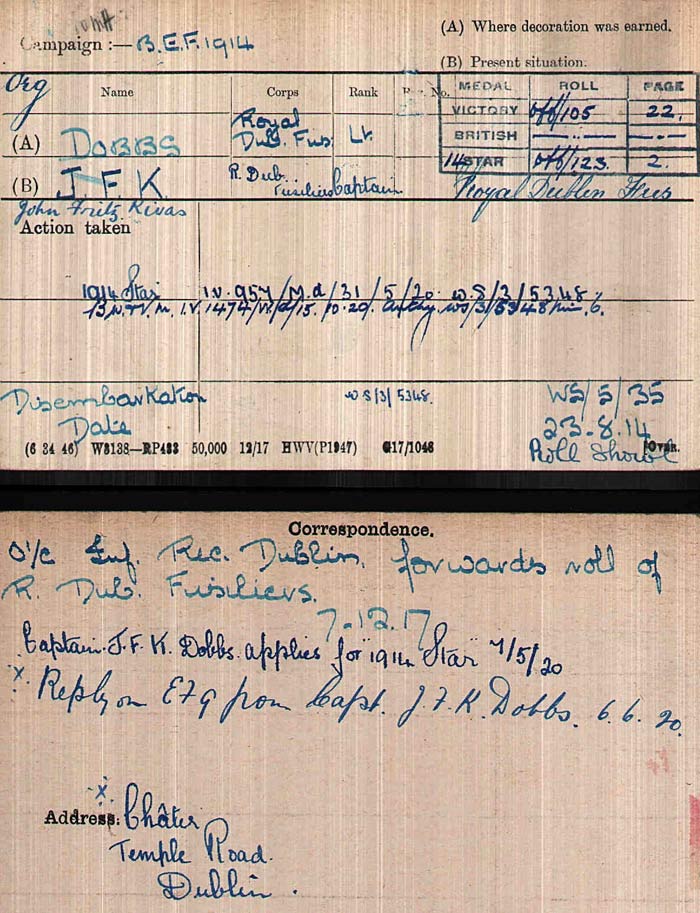 Campaign :— B.E.F. 1914
(A) Where decoration was earned.
(B) Present situation.
Org
Name Corps Rank Reg. No.
MEDAL ROLL PAGE
VICTORY Off/105 22.
BRITISH —"— —"—
14 STAR Off/123. 2.
(A) DOBBS Royal Dub. Fus. Lt.
(B) J F K. R. Dub. Fusiliers Captain
Royal Dublin Fus
John Fritz Kivas
Action taken
1914 Star I.V. 957/M.d/31/5/20. W.S/3/5348
B.W.&V.M. I.V. 1474/ 15.10.20. W.S/3/5348
Disembarkation W S/3/5348. WS/5/35
Date 23.8.14
(6 34 46) W3138—RP433 50,000 12/17 HWV(P1947) G17/1046 [OVER.
Roll Shows
Correspondence.
O i/c Inf. Rec. Dublin. forwards roll of
R. Dub. Fusiliers.
7.12.17
Captain J. F. K. Dobbs. applies for "1914 Star" 7/5/20
x Reply on Ef9 from Capt. J. F. K. Dobbs. 6.6.20
x
Address:
Temple Road.
Dublin.